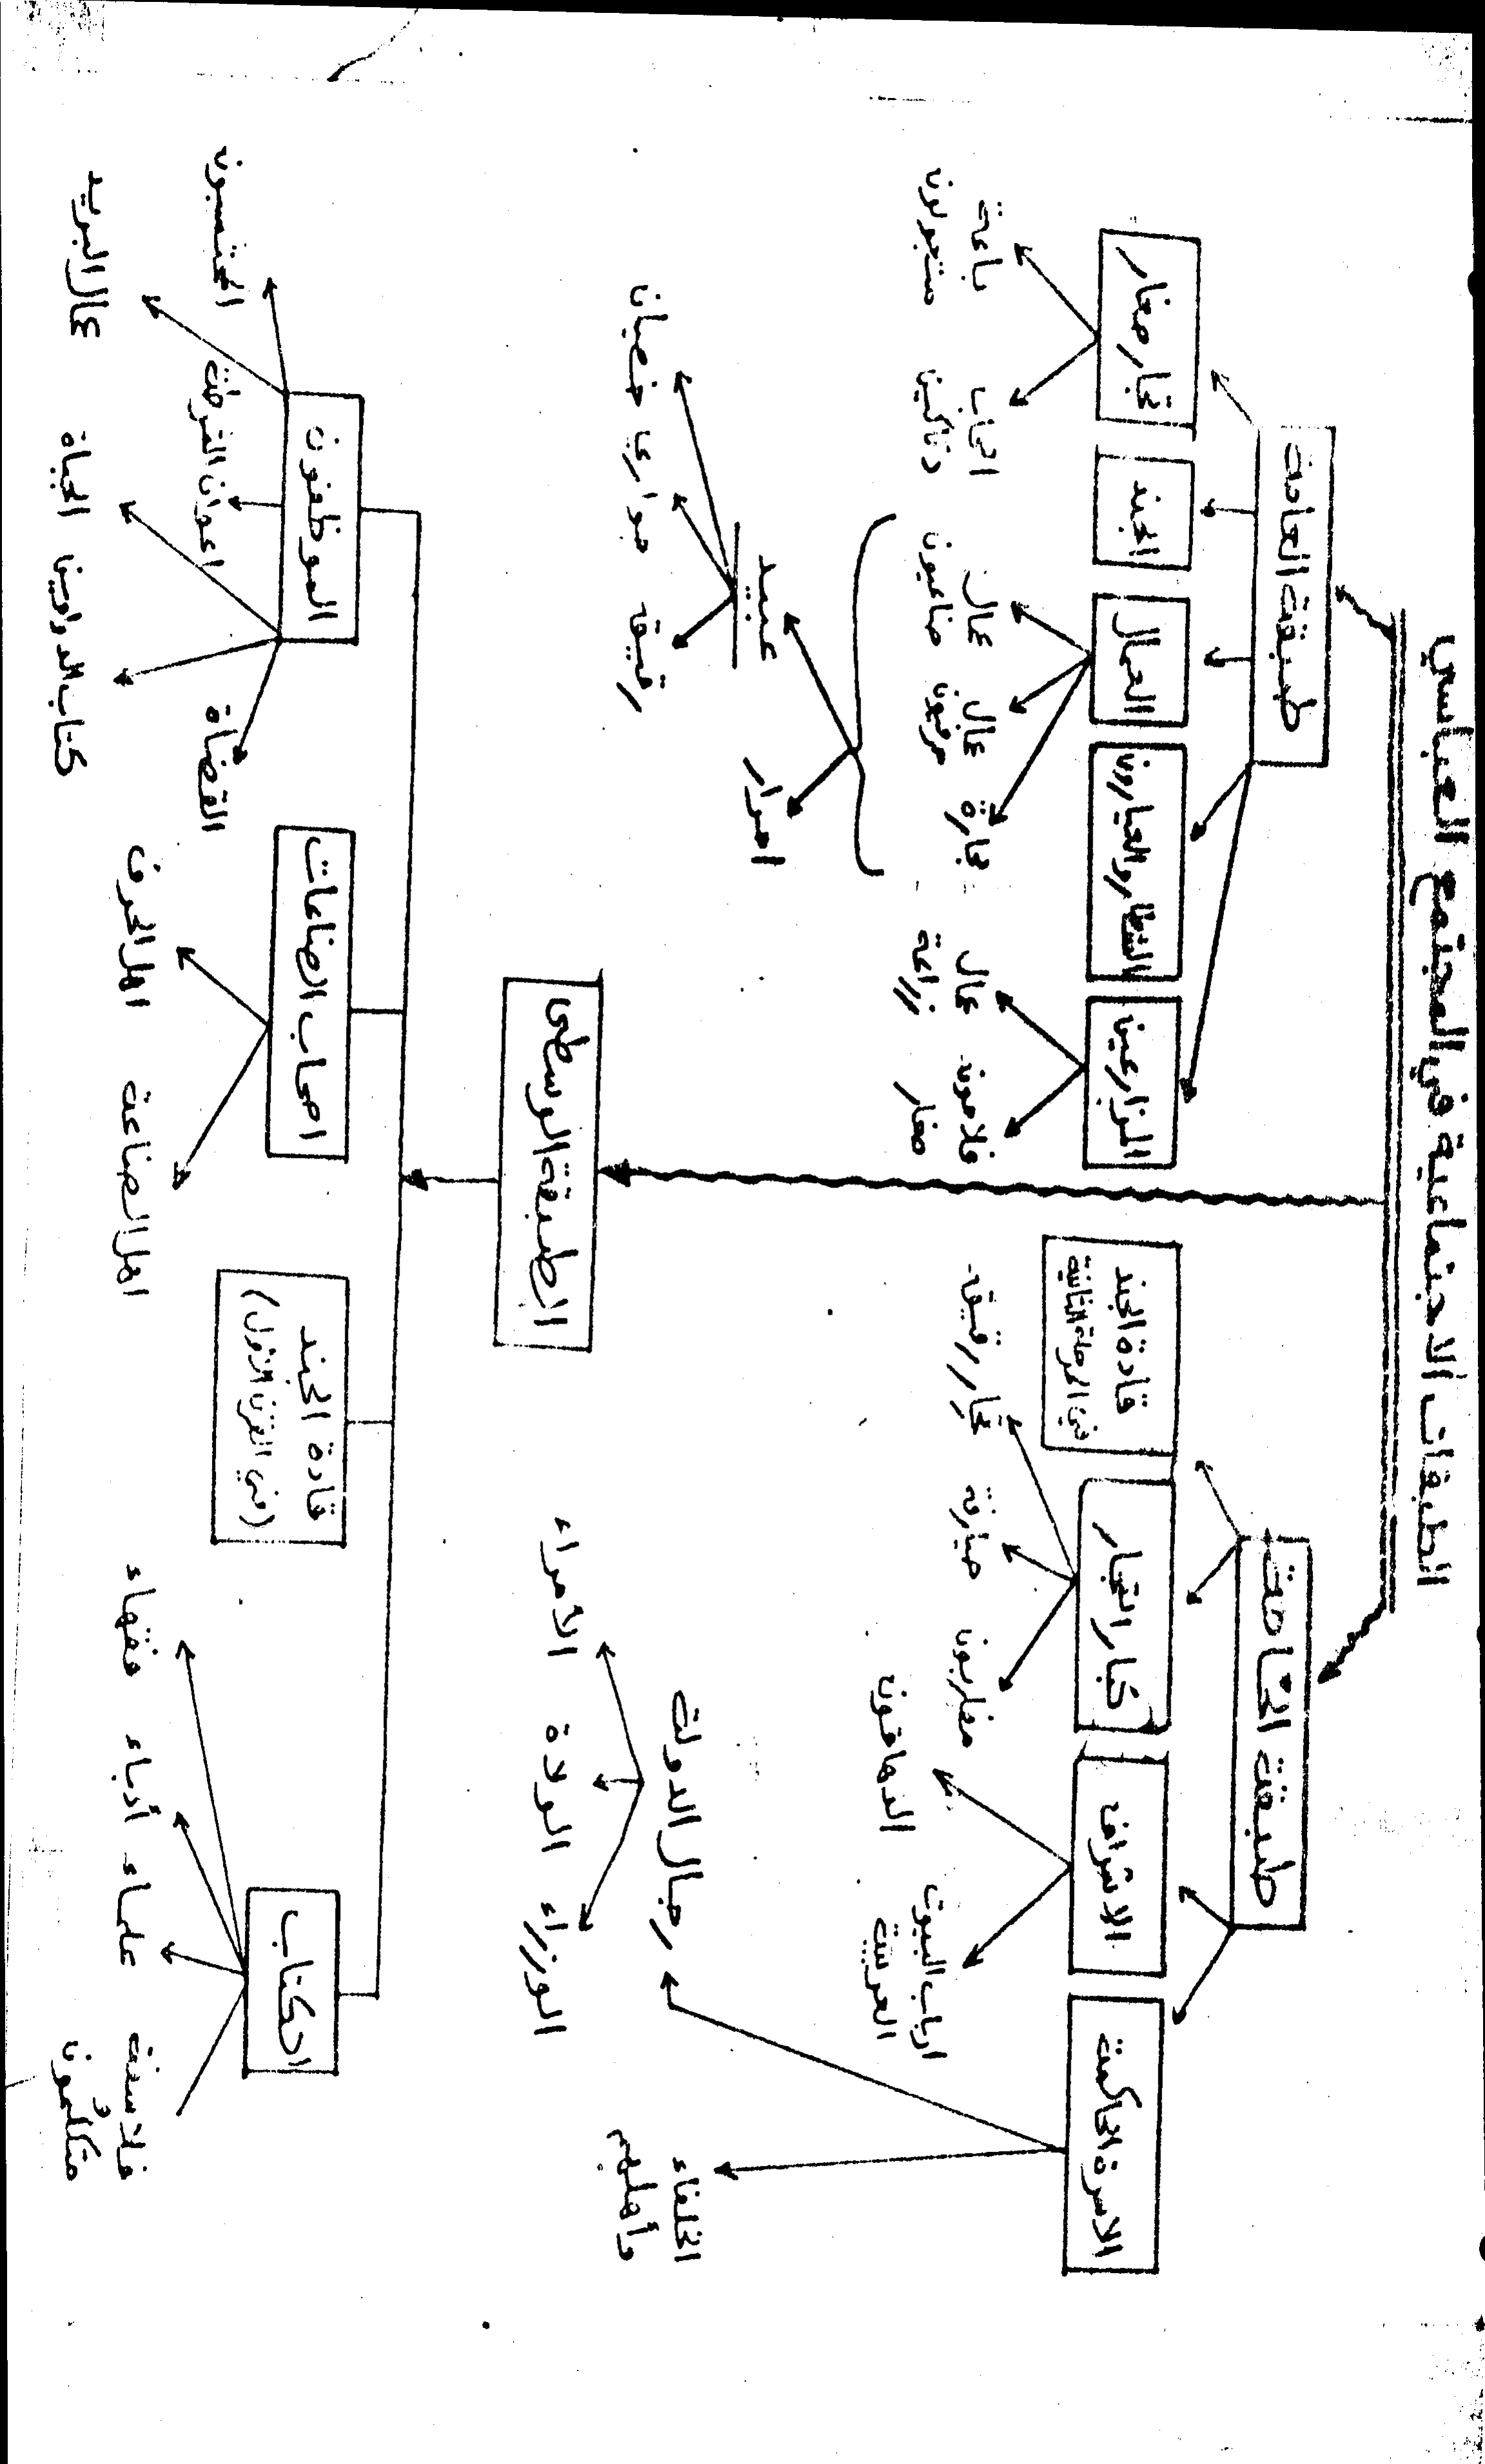 الطبقات الاجتماعية في المجتمع العباسي
طبقة الخاصة
الاسرة الحاكمة
الاشراف
كبار التجار
قادة الجند
في المرحلة الثانية
الخلفاء
وأهليهم
رجال الدولة
الوزراء
الولاة
الأمراء
ارباب البيوت
العربية
الدهاقون
مضاربون
صيارفة
تجار رقيق
طبقة العامة
المزارعين
الشطار والعيارون
العمال
الجند
تجار صغار
فلاحون
صغار
عمال
زراعة
تجارة
عمال
حرفيون
عمال
صناعيون
اصحاب
دكاكين
باعة
متجولون
احرار
عبيد
رقيق
جواري
خصيان
الطبقة الوسطى
الكتاب
قادة الجند
(في القرن الأول)
اصحاب الصناعات
الموظفون
فلاسفة
و
متكلمون
علماء
أدباء
فقهاء
اهل الصناعة
اهل الحرف
القضاة
كتاب الدواوين
الجباة
اعوان الشرطة
عمال البريد
المحتسبون